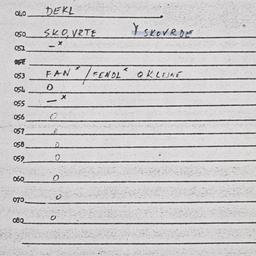 040 DEKL
050 SKO,VRTE Y SKOVRDE
051 – x
053 FAN" / FENDL"
054 O
055 – x
056 O
057 O
058 O
059 O
060 O
070 O
080 O